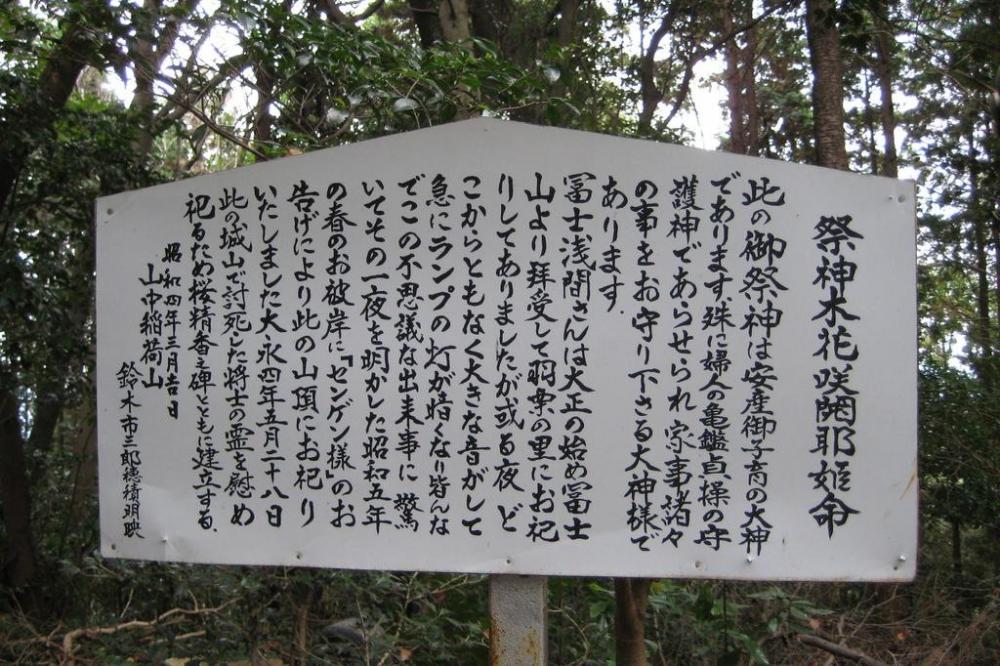 祭神木花咲開耶姫命
此の御祭神は安産御子育の大神
であります殊に婦人の亀鑑貞操の守
護神であらせられ家事諸々
の事をお守り下さる大神様で
あります.
冨士浅間さんは大正の始め冨士
山より拝受して羽楽の里にお祀
りしてありましたが或る夜ど
こからともなく大きな音がして
急にランプの灯が暗くなり皆んな
でこの不思議な出来事に驚
いてその一夜を明かした昭和五年
の春のお被岸に｢センゲン様｣のお
告げにより此の山頂にお祀り
いたしました大永四年五月二十八日
此の城山で討死した将士の霊を慰め
祀るため桜精香之碑とともに建立する.
昭和四年三月吉日
山中稲荷山
鈴木市三郎穂積明映